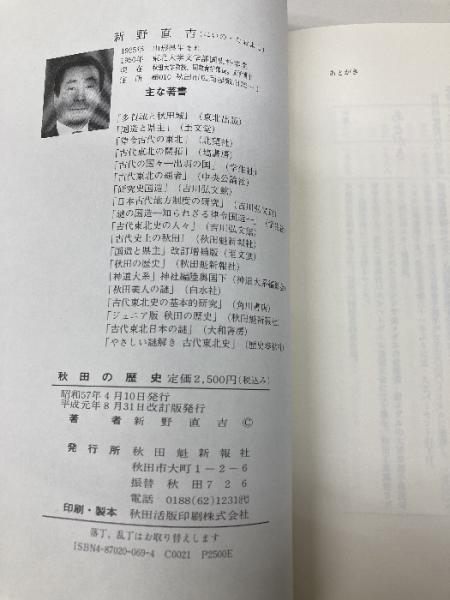 新野直吉(にいの・なおよし)
1925年 山形県生まれ
1950年 東北大学文学部国史学卒業
現在
主な著書
「多賀城と秋田城」(東北出版)
「国造と県主」(至文堂)
「律令古代の東北」(北望社)
「古代東北の開拓」(塙書房)
「古代の国々―出羽の国」(学生社)
「古代東北の覇者」(中央公論社)
「研究史国造」(吉川弘文館)
「日本古代地方制度の研究」(吉川弘文館)
「謎の国造―知られざる律令国造―」(学生社)
「古代東北史の人々」(吉川弘文館)
「古代史上の秋田」(秋田魁新報社)
「国造と県主」改訂増補版(至文堂)
「秋田の歴史」(秋田魁新報社)
「神道大系」神社編陸奥国下(神道大系編纂会)
「秋田美人の謎」(白水社)
「古代東北史の基本的研究」(角川書店)
「ジュニア版 秋田の歴史」(秋田魁新報社)
「古代東北日本の謎」(大和書房)
「やさしい謎解き 古代東北史」(歴史春秋社)
秋田の歴史 定価2,500円(税込み)
昭和57年4月10日発行
平成元年8月31日改訂版発行
著者 新野直吉 ©
発行所 秋田魁新報社
秋田市大町1-2-6
振替 秋田726
電話 0188(62)1231㈹
印刷・製本 秋田活版印刷株式会社
落丁、乱丁はお取り替えします
ISBN4-87020-069-4 C0021 P2500E
あとがき